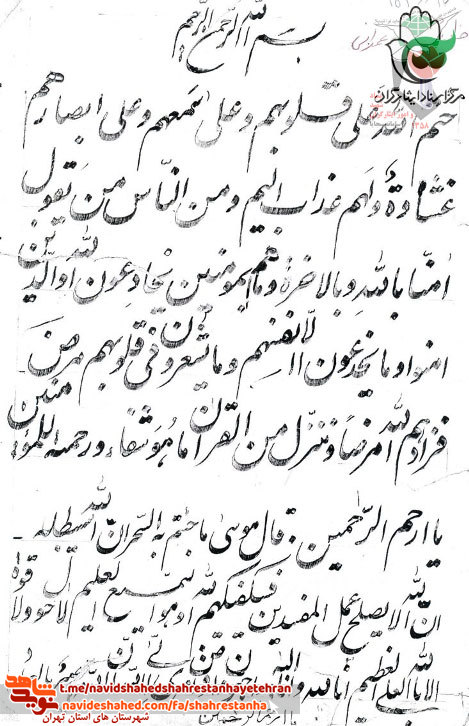 بسم الله الرحمن الرحیم
مرکز اسناد ایثارگران
ختم الله علی قلوبهم وعلی سمعهم وعلی ابصارهم
غشاوة ولهم عذاب الیم ومن الناس من یقول
امنا بالله وبالاخرة وماهم بمومنین یخادعون الله والذین
امنوا وما یخدعون الا انفسهم وما یشعرون فی قلوبهم مرض
فزادهم الله مرضا وننزل من القرآن ما هو شفاء ورحمة للمؤمنین
یا ارحم الراحمین. قال موسی ما جئتم به السحر ان الله سیبطله
ان الله لا یصلح عمل المفسدین فسیکفیکهم الله وهو السمیع العلیم لاحول ولا قوة
الا بالله العلی العظیم
t.me/navidshahedshahrestanhayetehran
navideshahed.com/fa/shahrestanha
شهرستان های استان تهران